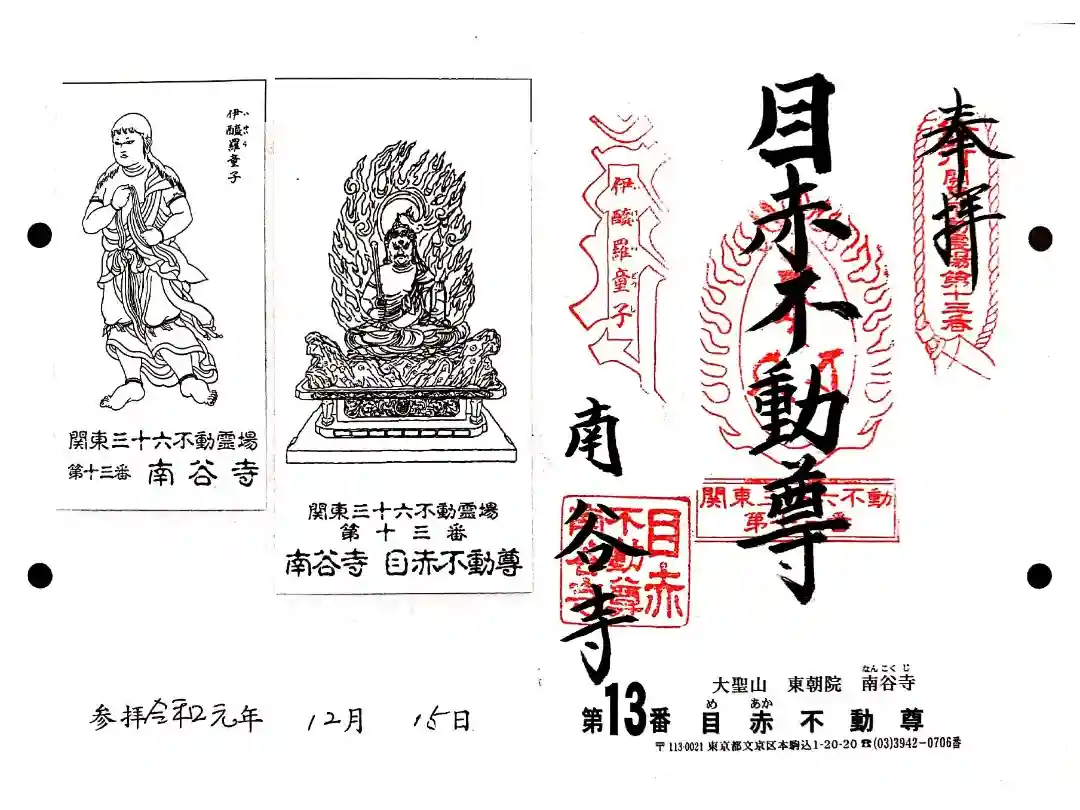 奉拝
目赤不動尊
南谷寺
伊醯羅童子
関東三十六不動
第十三番
目赤
不動尊
南谷寺
大聖山 東朝院 南谷寺
なんこくじ
第13番 目赤不動尊
め あか
〒113-0021 東京都文京区本駒込1-20-20 ☎(03)3942-0706番
伊醯羅童子
関東三十六不動霊場
第十三番 南谷寺
関東三十六不動霊場
第十三番
南谷寺 目赤不動尊
参拝令和元年 12月 15日